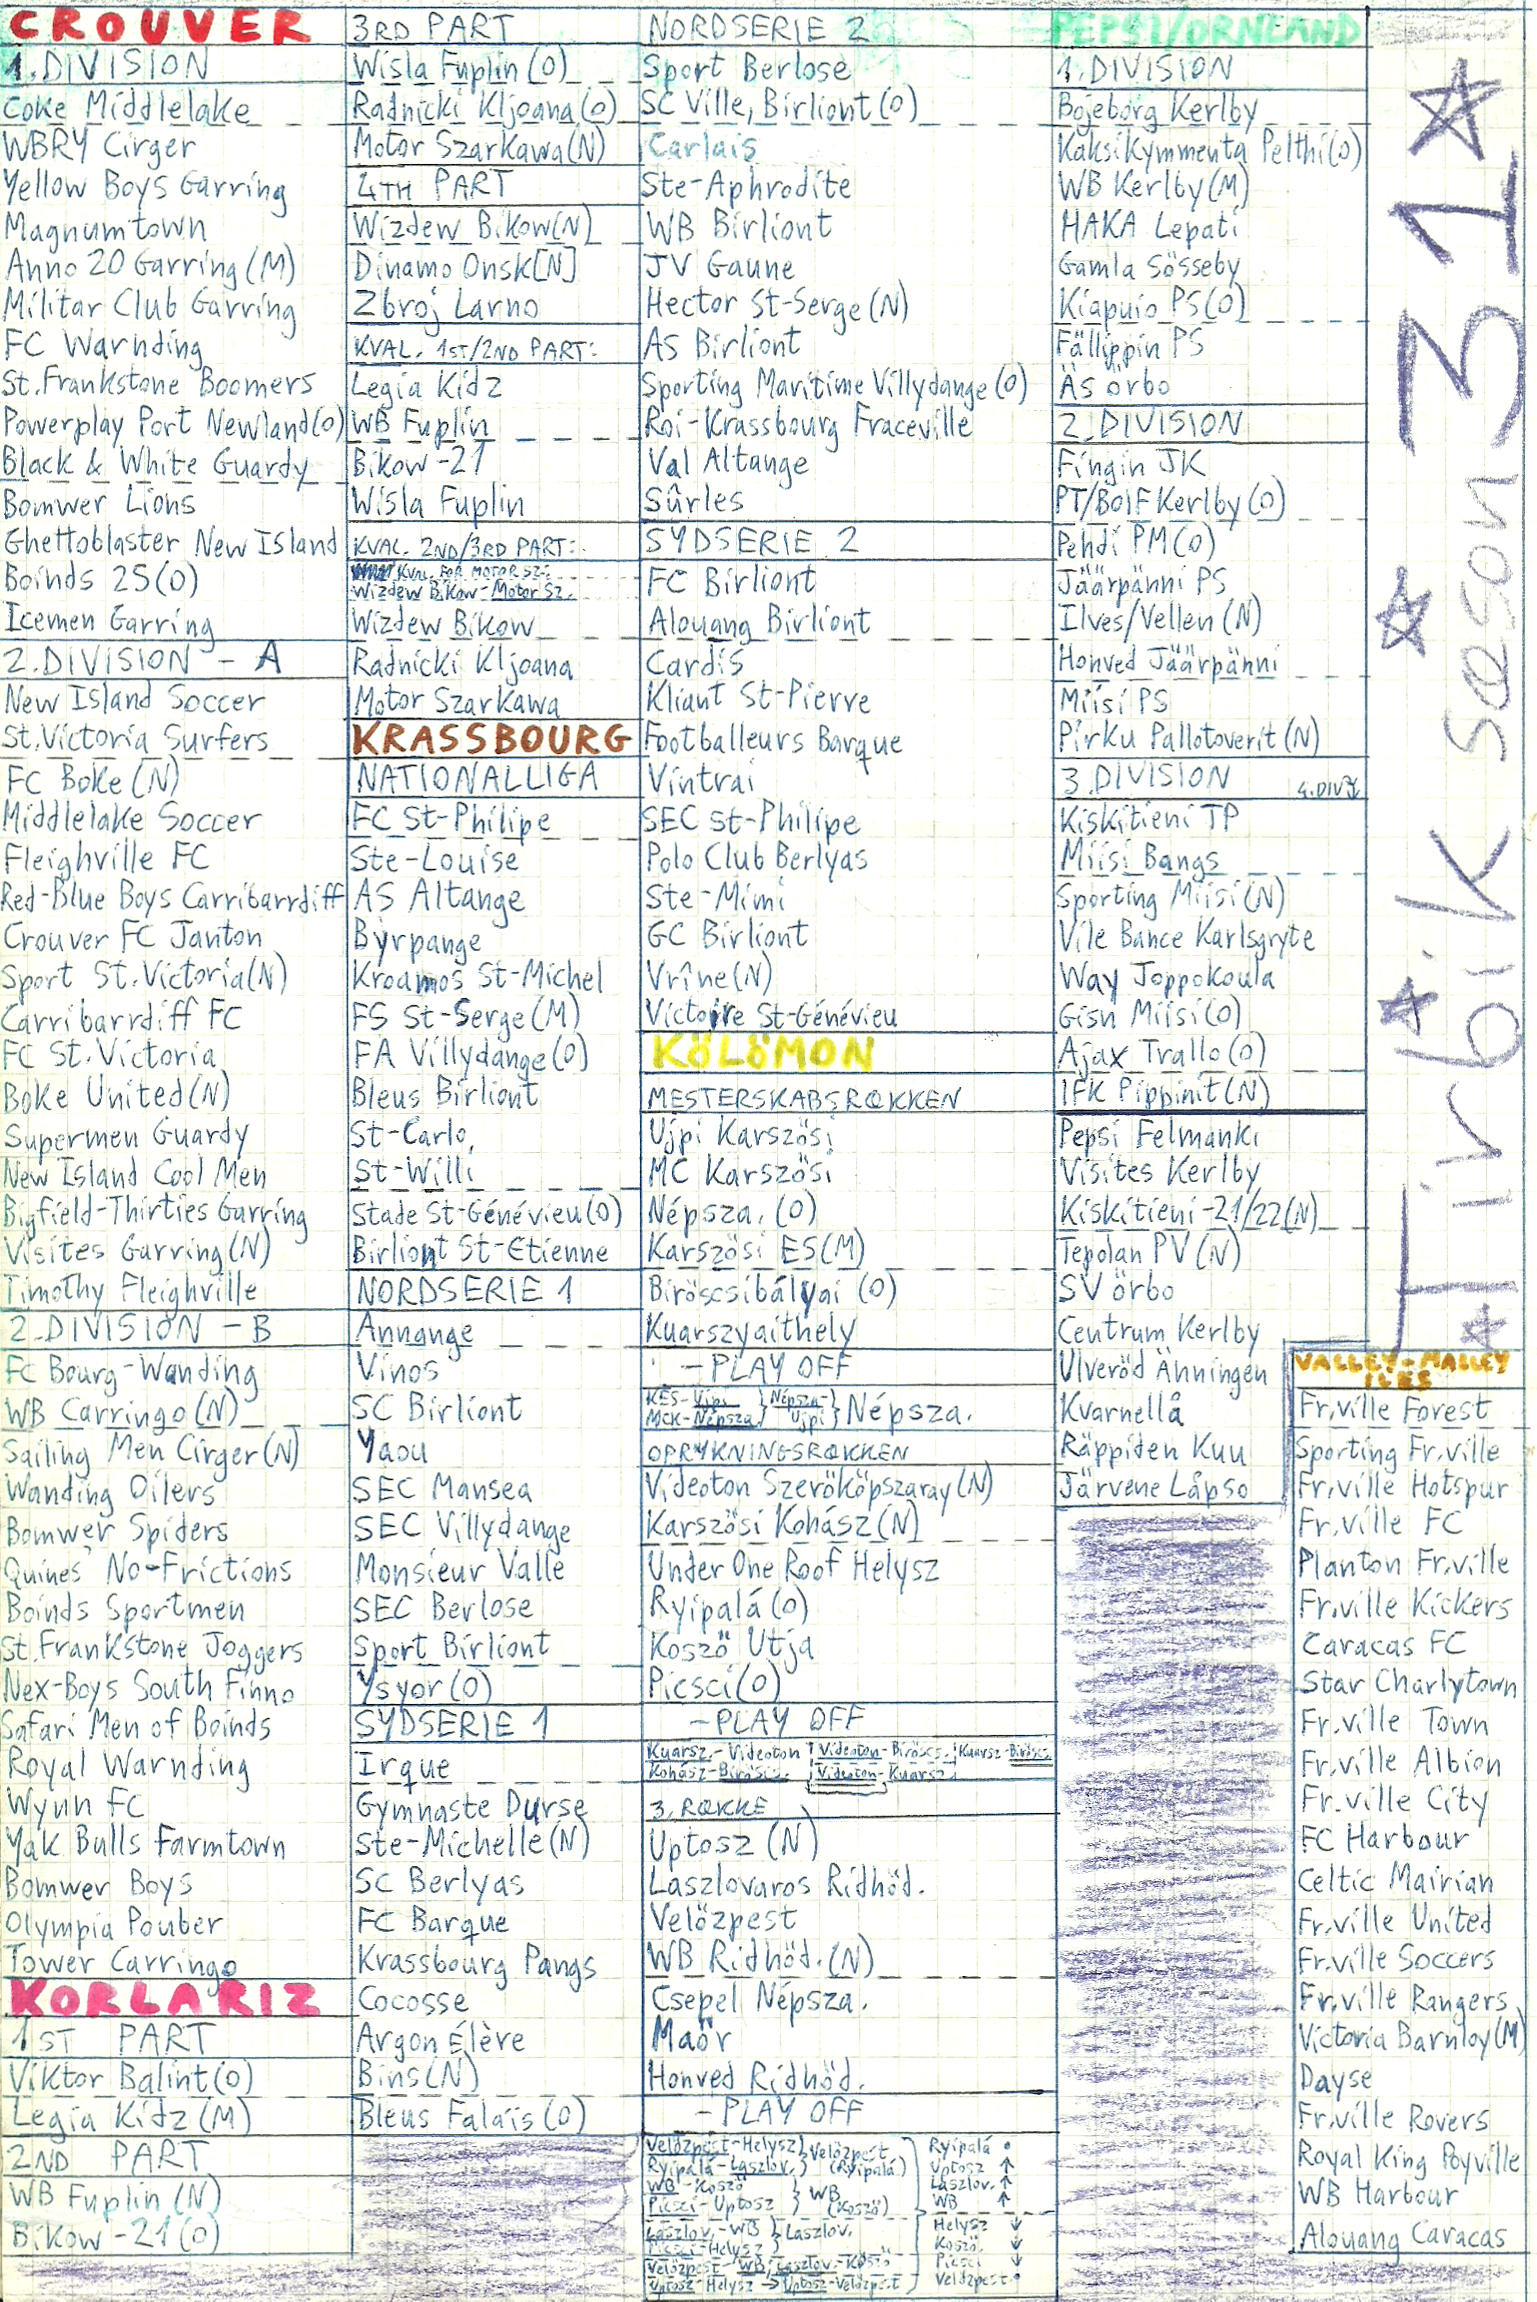 CROUVER
1. DIVISION
Coke Middlelake
WBRY Cirger
Yellow Boys Garring
Magnumtown
Anno 20 Garring (M)
Militar Club Garring
FC Warnding
St. Frankstone Boomers
Powerplay Port Newland (O)
Black & White Guardy
Bomwer Lions
Ghettoblaster New Island
Boinds 25 (O)
Icemen Garring
2. DIVISION - A
New Island Soccer
St. Victoria Surfers
FC Boke (N)
Middlelake Soccer
Fleighville FC
Red-Blue Boys Carribarrdiff
Crouver FC Janton
Sport St. Victoria (N)
Carribarrdiff FC
FC St. Victoria
Boke United (N)
Supermen Guardy
New Island Cool Men
Bigfield-Thirties Garring
Visites Garring (N)
Timothy Fleighville
2. DIVISION - B
FC Bourg-Wanding
WB Carringo (N)
Sailing Men Cirger (N)
Wanding Oilers
Bomwer Spiders
Quines' No-Frictions
Boinds Sportmen
St. Frankstone Joggers
Nex-Boys South Finno
Safari Men of Boinds
Royal Warnding
Wynn FC
Yak Bulls Farmtown
Bomwer Boys
Olympia Pouber
Tower Carringo
KORLARIZ
1ST PART
Viktor Balint (O)
Legia Kidz (M)
2ND PART
WB Fuplin (N)
Bikow-21 (O)
3RD PART
Wisla Fuplin (O)
Radnicki Kljoana (O)
Motor Szarkawa (N)
4TH PART
Wizdew Bikow [N]
Dinamo Onsk [N]
Zbroj Larno
KVAL. 1ST/2ND PART:
Legia Kidz
WB Fuplin
Bikow-21
Wisla Fuplin
KVAL. 2ND/3RD PART:
KVAL. FOR MOTOR SZ.:
Wizdew Bikow - Motor Sz.
Wizdew Bikow
Radnicki Kljoana
Motor Szarkawa
KRASSBOURG
NATIONALLIGA
FC St-Philipe
Ste-Louise
AS Altange
Byrpange
Kroamos St-Michel
FS St-Serge (M)
FA Villydange (O)
Bleus Birliont
St-Carlo
St-Willi
Stade St-Génévieu (O)
Birliont St-Etienne
NORDSERIE 1
Annange
Vinos
SC Birliont
Yaou
SEC Mansea
SEC Villydange
Monsieur Valle
SEC Berlose
Sport Birliont
Ysyor (O)
SYDSERIE 1
Irque
Gymnaste Durse
Ste-Michelle (N)
SC Berlyas
FC Barque
Krassbourg Pangs
Cocosse
Argon Élère
Bins (N)
Bleus Falais (O)
NORDSERIE 2
Sport Berlose
SC Ville, Birliont (O)
Carlais
Ste-Aphrodite
WB Birliont
JV Gaune
Hector St-Serge (N)
AS Birliont
Sporting Maritime Villydange (O)
Roi-Krassbourg Fraceville
Val Altange
Sûrles
SYDSERIE 2
FC Birliont
Alouang Birliont
Cardis
Kliant St-Pierre
Footballeurs Barque
Vintrai
SEC St-Philipe
Polo Club Berlyas
Ste-Mimi
GC Birliont
Vrîne (N)
Victoire St-Génévieu
KÖLÖMON
MESTERSKABSRÆKKEN
Ujpi Karszösi
MC Karszösi
Népsza. (O)
Karszösi ES (M)
Biröscsibályai (O)
Kuarszyaithely
- PLAY OFF
KES - Ujpi } Népsza - } Népsza.
MCK - Népsza } Ujpi
OPRYKNINGSRÆKKEN
Videoton Szerököpszaray (N)
Karszösi Kohász (N)
Under One Roof Helysz
Ryipalá (O)
Koszö Utja
Picsci (O)
- PLAY OFF
Kuarsz. - Videoton Videoton - Birösc. Kuarsz - Birösc.
Kohász - Birösc. Videoton - Kuarsz
3. RÆKKE
Uptosz (N)
Laszlovaros Ridhöd.
Velözpest
WB Ridhöd. (N)
Csepel Népsza.
Maör
Honved Ridhöd.
- PLAY OFF
Velözpest - Helysz } Velözpest Ryipalá •
Ryipalá - Laszlov. } (Ryipalá) Uptosz ↑
WB - Koszö } WB Laszlov. ↑
Picsci - Uptosz } (Koszö) WB ↑
Laszlov. - WB } Laszlov. Helysz ↓
Picsci - Helysz } Koszö. ↓
Velözpest - WB, Laszlov. - Koszö Picsci ↓
Uptosz - Helysz → Uptosz - Velözpest Velözpest •
PEPSI/ORNLAND
1. DIVISION
Bojeborg Kerlby
Kaksikymmenta Pelthi (O)
WB Kerlby (M)
HAKA Lepati
Gamla Sösseby
Kiapuio PS (O)
Fällippin PS
Äs örbo
2. DIVISION
Fingin JK
PT/BoIF Kerlby (O)
Pehdi PM (O)
Jäärpänni PS
Ilves/Vellen (N)
Honved Jäärpänni
Miisi PS
Pirku Pallotoverit (N)
3. DIVISION 4. DIV
Kiskitieni TP
Miisi Bangs
Sporting Miisi (N)
Vile Bance Karlsgryte
Way Joppokoula
Gisn Miisi (O)
Ajax Trallo (O)
IFK Pippinit (N)
Pepsi Felmanki
Visites Kerlby
Kiskitieni-21/22 (N)
Tepolan PV (N)
SV örbo
Centrum Kerlby
Ulveröd Änningen
Kvarnellå
Räppiden Kuu
Järvene Låpso
VALLEY-MALLEY
ILES
Fr.ville Forest
Sporting Fr.ville
Fr.ville Hotspur
Fr.ville FC
Planton Fr.ville
Fr.ville Kickers
Caracas FC
Star Charlytown
Fr.ville Town
Fr.ville Albion
Fr.ville City
FC Harbour
Celtic Mairian
Fr.ville United
Fr.ville Soccers
Fr.ville Rangers
Victoria Barnloy (M)
Dayse
Fr.ville Rovers
Royal King Poyville
WB Harbour
Alouang Caracas
Tirbik sæson 31